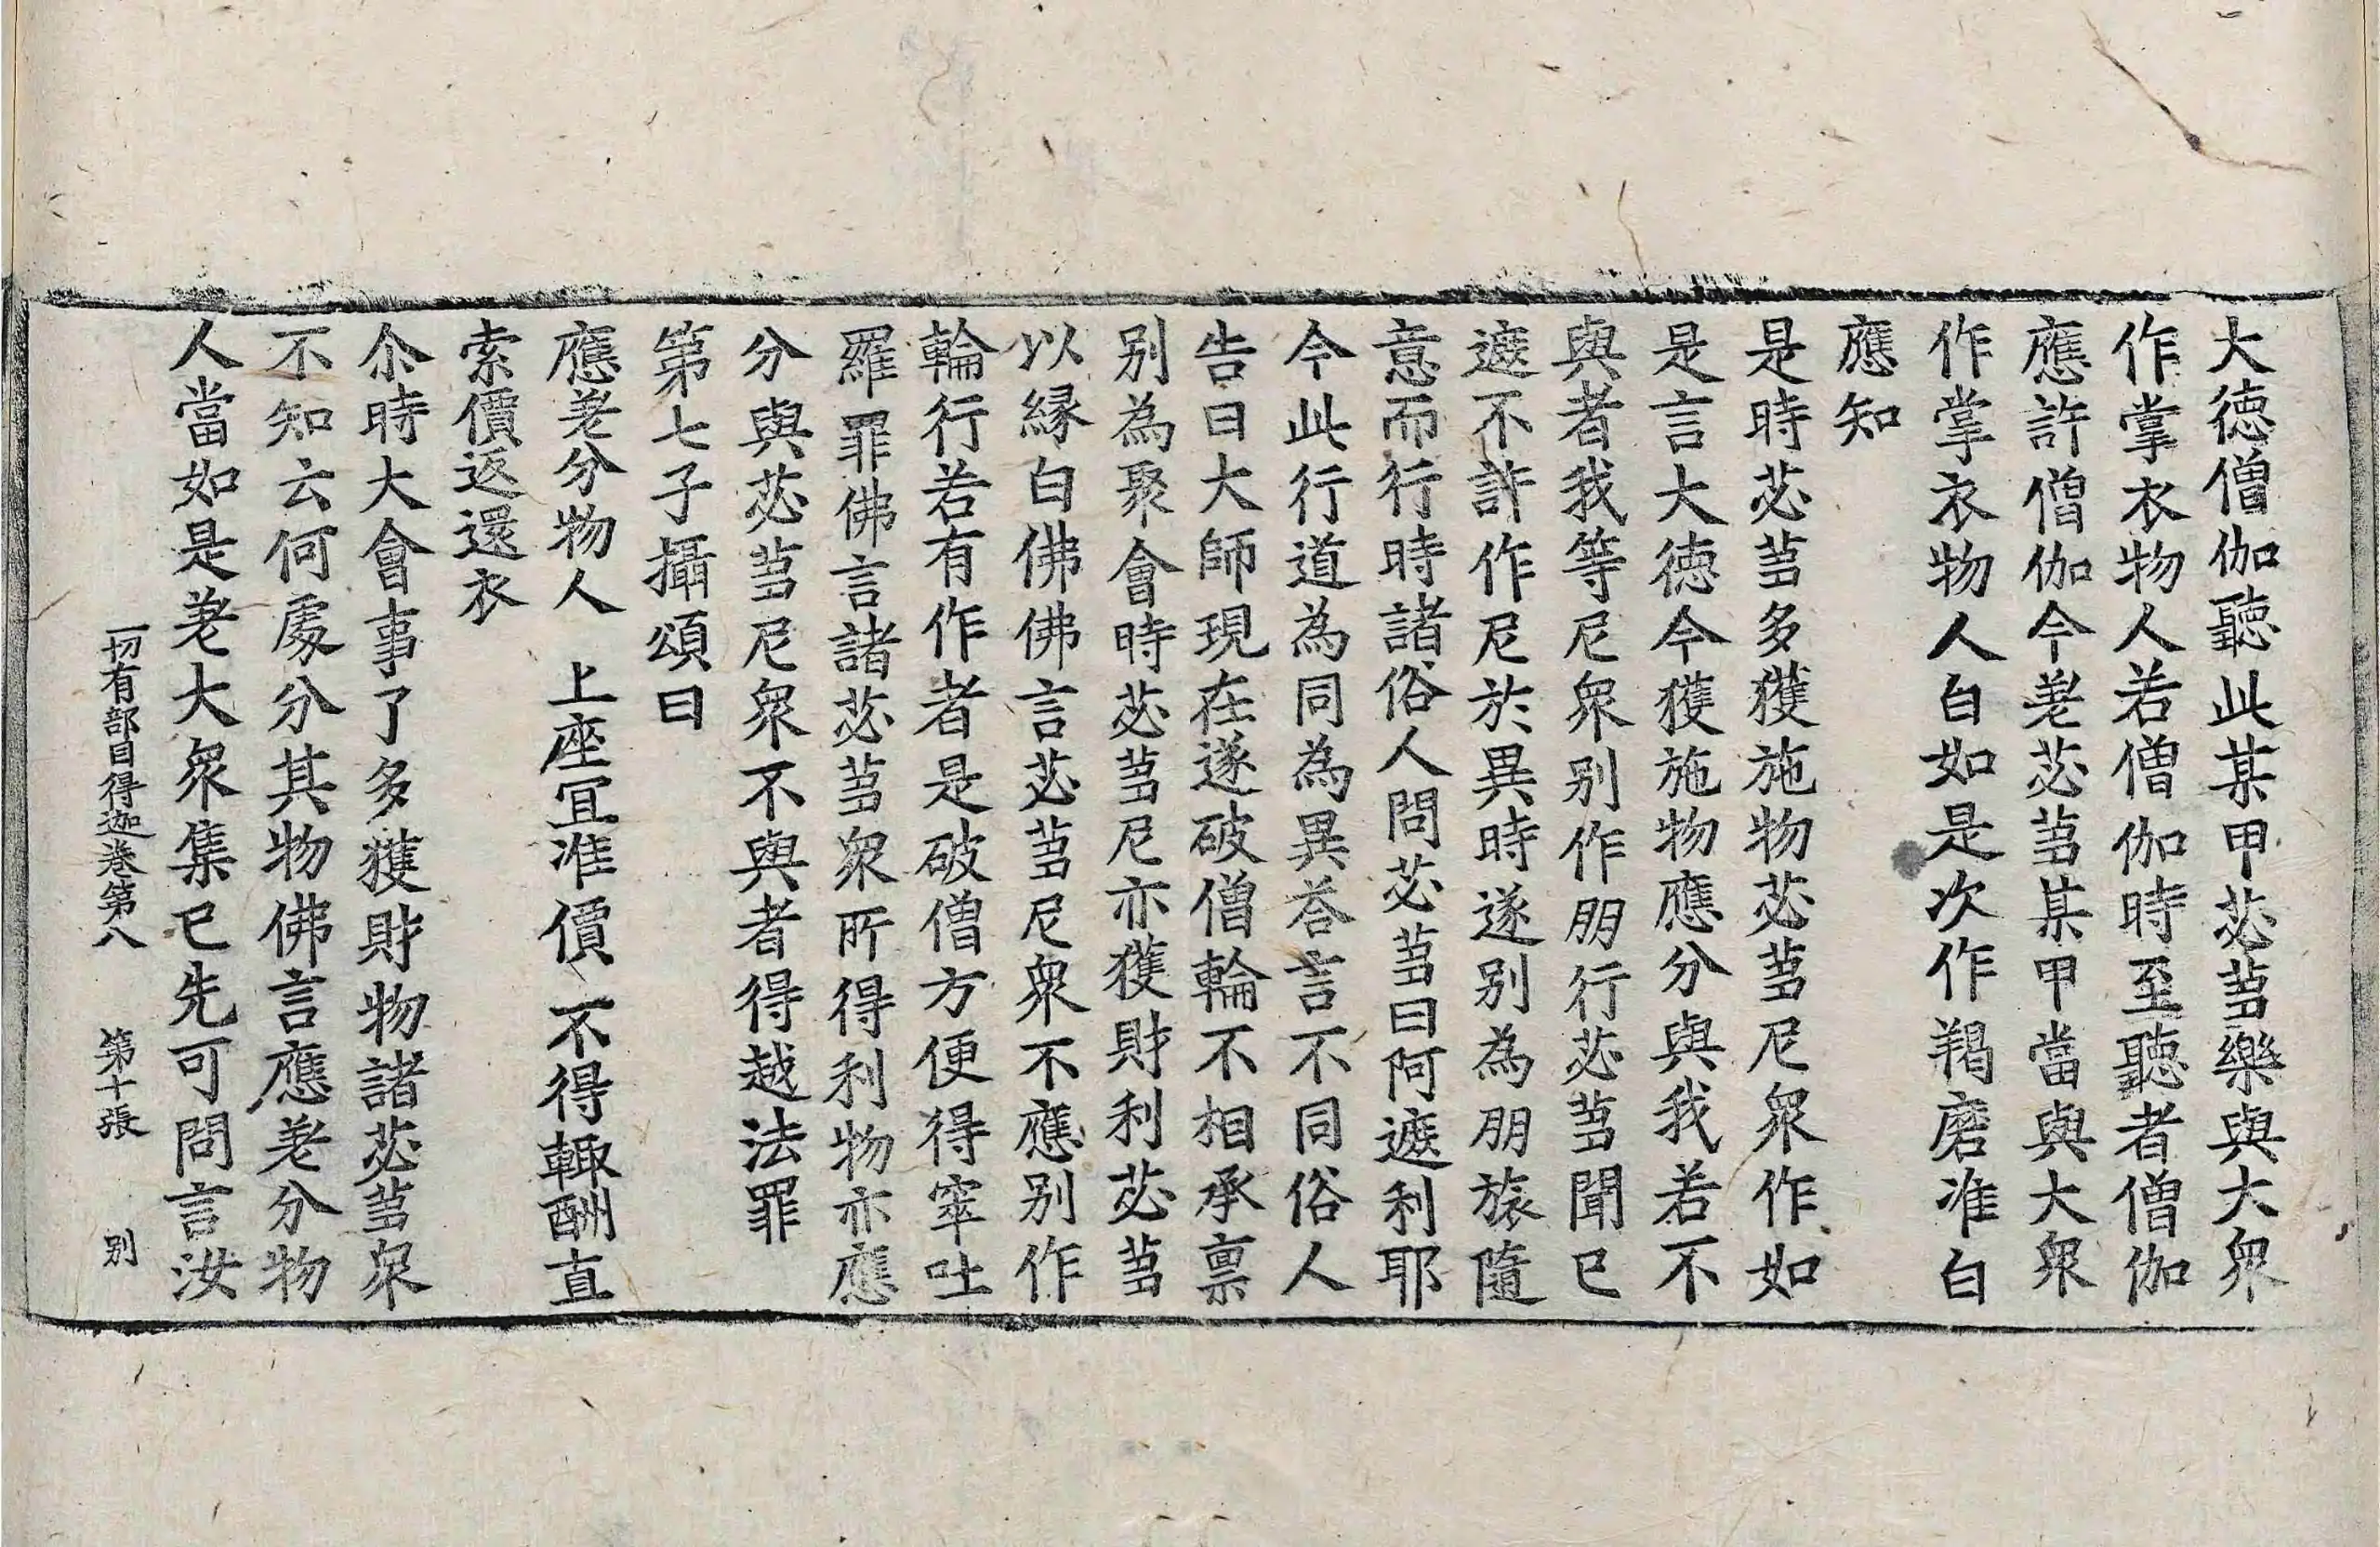 大徳僧伽聽此某甲苾蒭樂與大衆
作掌衣物人若僧伽時至聽者僧伽
應許僧伽今差苾蒭某甲當與大衆
作掌衣物人白如是次作羯磨准白
應知
是時苾蒭多獲施物苾蒭尼衆作如
是言大徳今獲施物應分與我若不
與者我等尼衆别作朋行苾蒭聞已
遮不許作尼於異時遂别為朋旅隨
意而行時諸俗人問苾蒭曰阿遮利耶
今此行道為同為異荅言不同俗人
告曰大師現在遂破僧輪不相承禀
别為聚會時苾蒭尼亦獲財利苾蒭
以縁白佛佛言苾蒭尼衆不應别作
輪行若有作者是破僧方便得窣吐
羅罪佛言諸苾蒭衆所得利物亦應
分與苾蒭尼衆不與者得越法罪
第七子攝頌曰
應差分物人　上座冝准價　不得輙酬直
索價返還衣
尒時大會事了多獲財物諸苾蒭衆
不知云何處分其物佛言應差分物
人當如是差大衆集已先可問言汝
一切有部目得迦卷第八　第十張　别